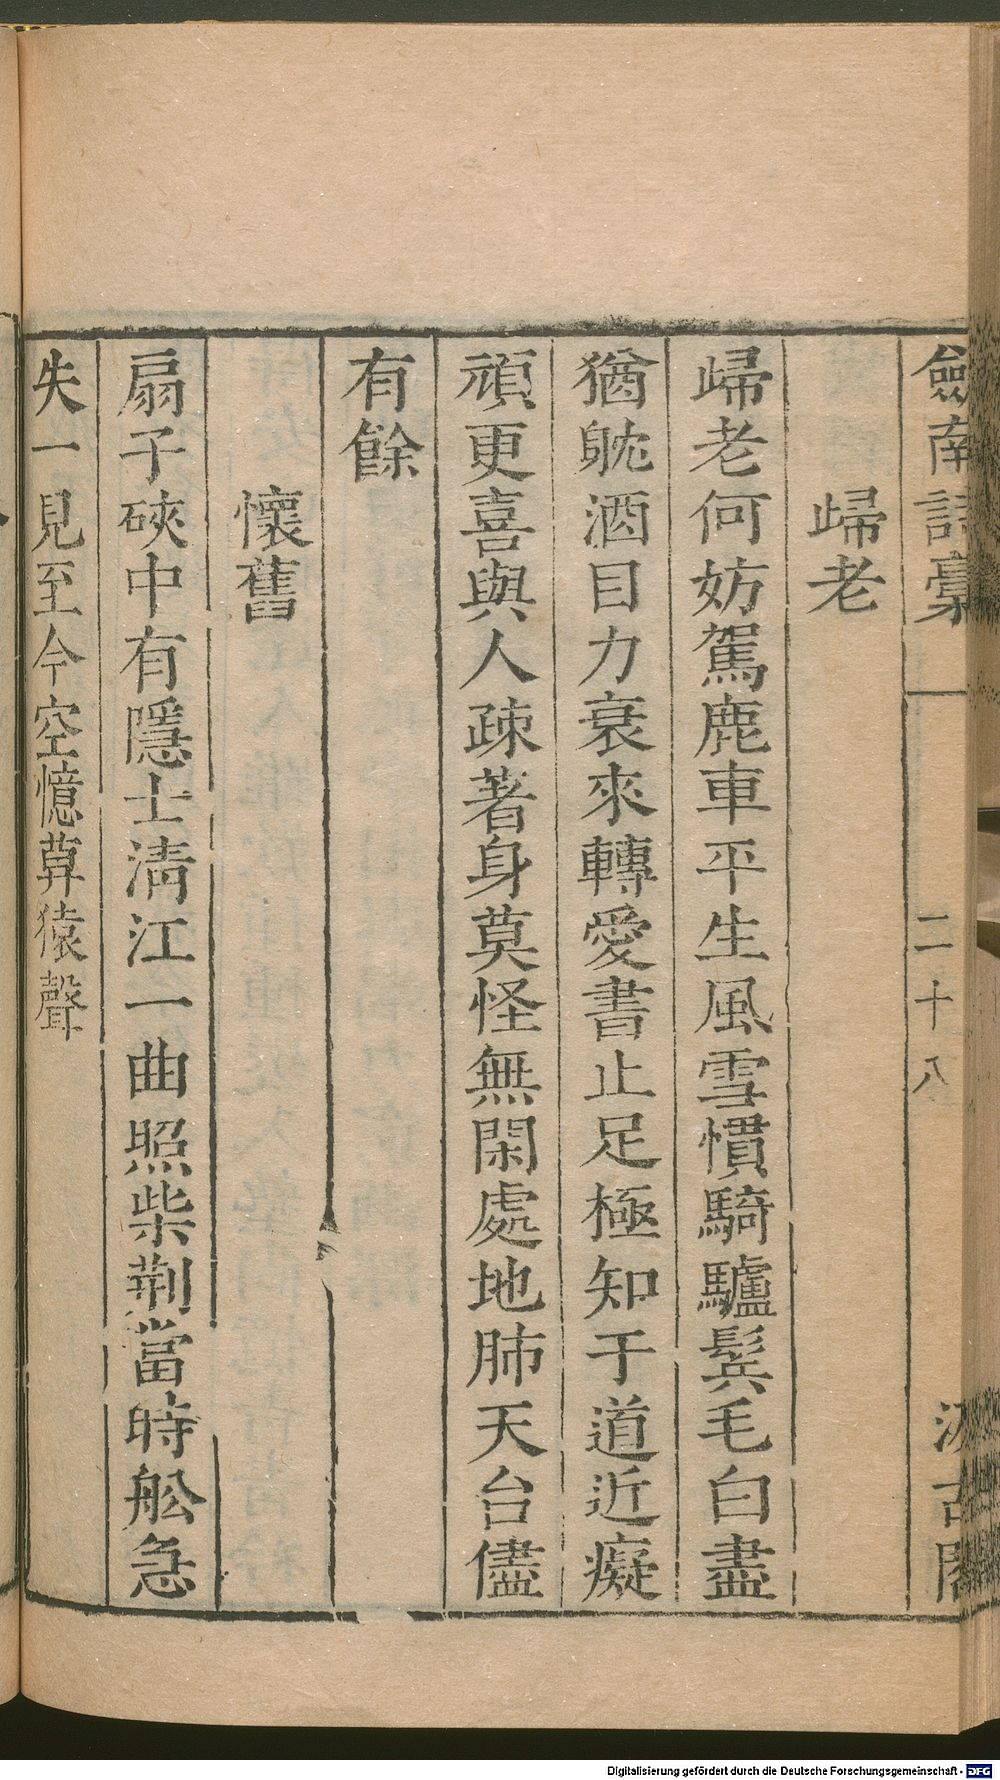 劍南詩稾 二十八 汲古閣
歸老
歸老何妨駕鹿車平生風雪慣騎驢鬂毛白盡
猶躭酒目力衰來轉愛書止足極知于道近癡
頑更喜與人疎著身莫怪無閑處地肺天台儘
有餘
懷舊
扇子硤中有隱士淸江一曲照柴荆當時舩急
失一見至今空憶莫猿聲
Digitalisierung gefördert durch die Deutsche Forschungsgemeinschaft - DFG